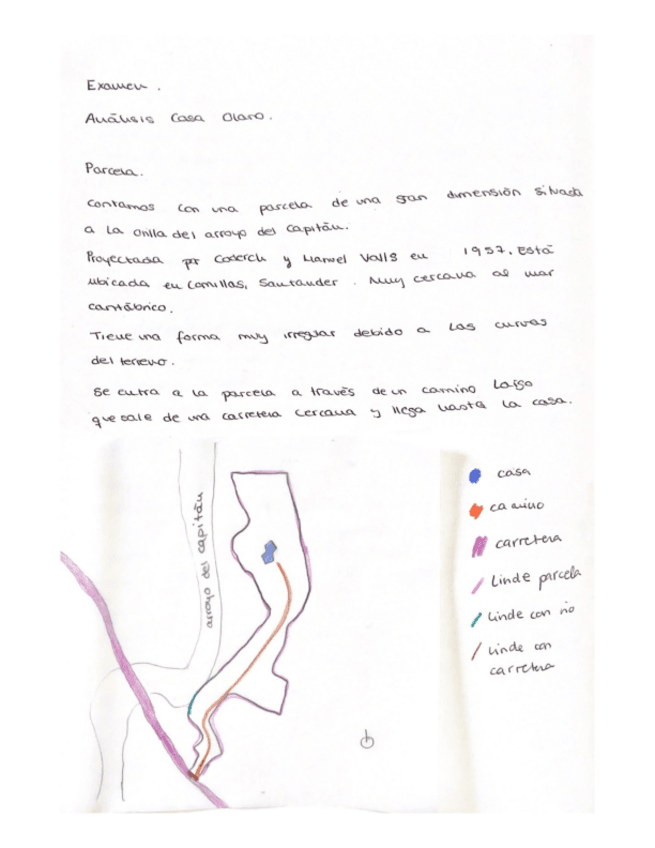 Examen.
Análisis Casa Olano.
Parcela.
Contamos con una parcela de una gran dimensión situada
a la orilla del arroyo del Capitán.
Proyectada por Coderch y Manuel Valls en 1957. Está
ubicada en Comillas, Santander. Muy cercana al mar
cantábrico.
Tiene una forma muy irregular debido a las curvas
del terreno.
Se entra a la parcela a través de un camino largo
que sale de una carretera cercana y llega hasta la casa.
casa
camino
carretera
Linde parcela
Linde con río
Linde con
carretera
arroyo del capitán